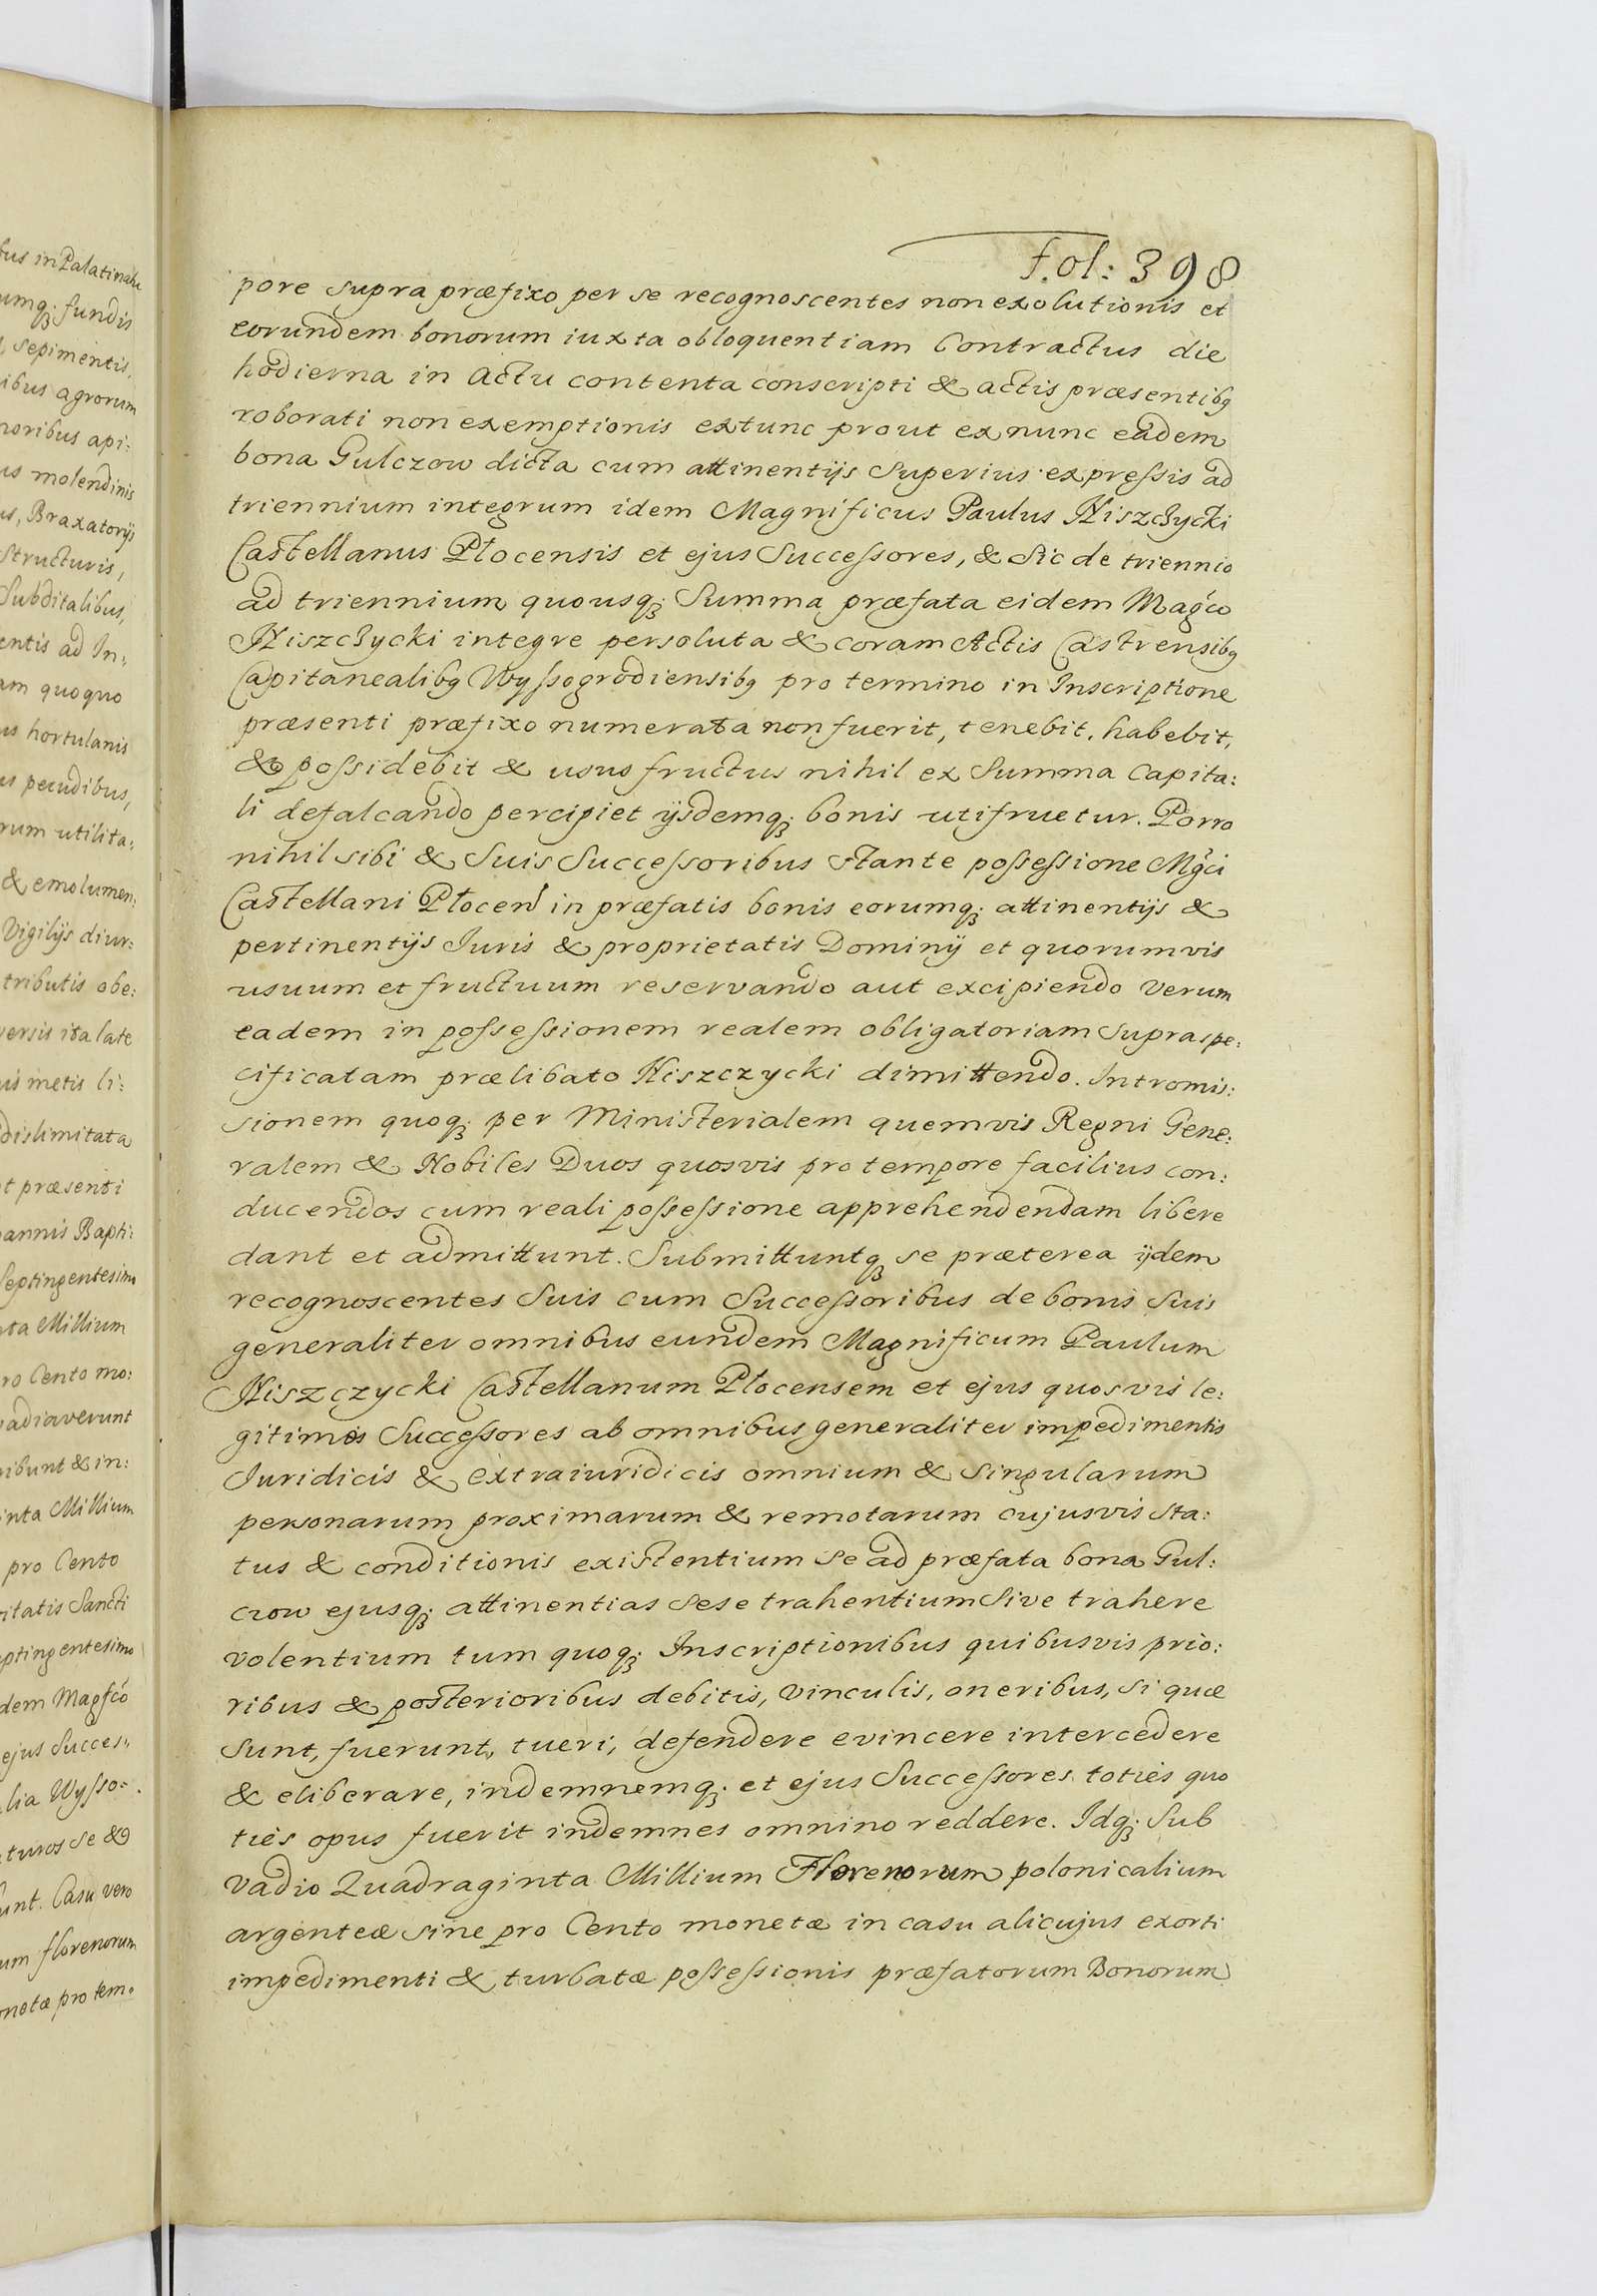 Fol: 398
pore supra præfixo per se recognoscentes non exolutionis et
eorundem bonorum iuxta obloquentiam Contractus die
hodierna in Actu contenta conscripti & actis præsentibq
roborati non exemptionis extunc prout ex nunc eadem
bona Gulczow dicta cum attinentijs Superius expressis ad
triennium integrum idem Magnificus Paulus Niszczycki
Castellanus Płocensis et ejus Successores, & Sic de triennio
ad triennium quousqȝ Summa præfata eidem Magco
Niszczycki integre persoluta & coram Actis Castrensibq
Capitanealibq Wyssogrodiensibq pro termino in Inscriptione
præsenti præfixo numerata non fuerit, tenebit, habebit,
& possidebit & usus fructus nihil ex Summa Capita:
li defalcando percipiet ijsdemqȝ bonis utifruetur. Porro
nihil sibi & Suis Successoribus stante possessione Mgci
Castellani Płocen in præfatis bonis eorumqȝ attinentijs &
pertinentijs Juris & proprietatis Dominij et quorumvis
usuum et fructuum reservando aut excipiendo verum
eadem in possessionem realem obligatoriam supraspe:
cificatam prælibato Niszczycki dimittendo. Intromis:
sionem quoqȝ per Ministerialem quemvis Regni Gene:
ralem & Nobiles Duos quosvis pro tempore facilius con:
ducendos cum reali possessione apprehendendam libere
dant et admittunt. Submittuntqȝ se præterea ijdem
recognoscentes Suis cum Successoribus de bonis Suis
generaliter omnibus eundem Magnificum Paulum
Niszczycki Castellanum Płocensem et ejus quosvis le:
gitimos Successores ab omnibus generaliter impedimentis
Juridicis & extraiuridicis omnium & singularum
personarum proximarum & remotarum cujusvis sta:
tus & conditionis existentium se ad præfata bona Gul:
czow ejusqȝ attinentias sese trahentium Sive trahere
volentium tum quoqȝ Inscriptionibus quibusvis prio:
ribus & posterioribus debitis, vinculis, oneribus, si quæ
sunt, fuerunt, tueri, defendere evincere intercedere
& eliberare, indemnemqȝ et ejus Successores toties quo
ties opus fuerit indemnes omnino reddere. Idqȝ Sub
vadio Quadraginta Millium Florenorum polonicalium
argenteæ sine pro Cento monetæ in casu alicujus exorti
impedimenti & turbatæ possessionis præfatorum Bonorum